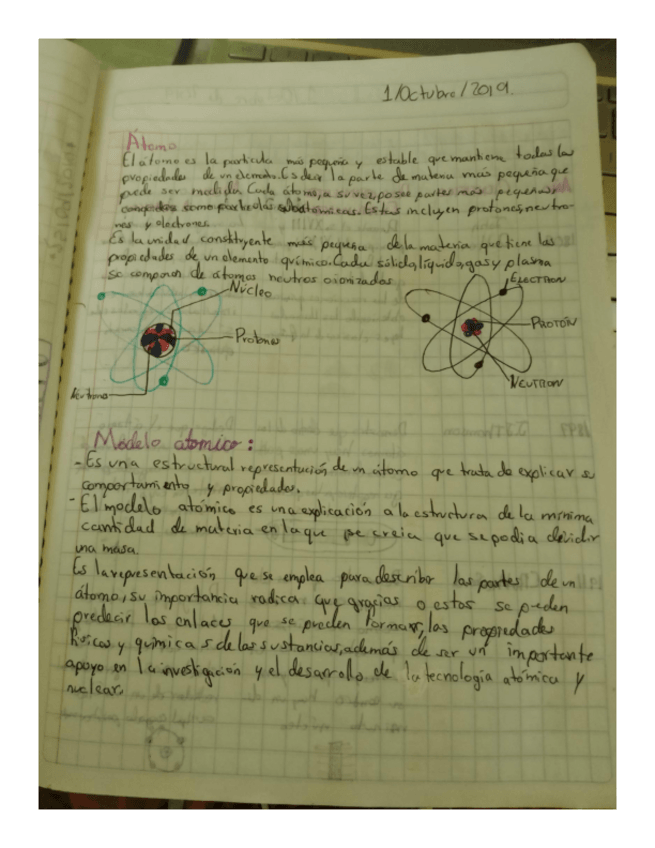 1/Octubre/2019.
Átomo
El átomo es la partícula mas pequeña y estable que mantiene todas las
propiedades de un elemento. Es decir la parte de materia mas pequeña que
puede ser medida. Cada átomo, a su vez, posee partes mas pequeñas,
conocidas como partículas subatómicas. Estas incluyen protones, neutro-
nes y electrones.
Es la unidad constituyente más pequeña de la materia que tiene las
propiedades de un elemento químico. Cada sólido, líquido, gas y plasma
se componen de átomos neutros o ionizados
Núcleo
ELECTRON
Protones
PROTÓN
NEUTRON
Neutrones
Modelo atomico:
- Es una estructural representación de un átomo que trata de explicar su
comportamiento y propiedades.
- El modelo atómico es una explicación a la estructura de la mínima
cantidad de materia en la que se creia que se podia dividir
una masa.
Es la representación que se emplea para describir las partes de un
átomo, su importancia radica que gracias a estos se pueden
predecir los enlaces que se pueden formar, las propiedades
físicas y químicas de las sustancias, además de ser un importante
apoyo en la investigación y el desarrollo de la tecnología atómica y
nuclear.